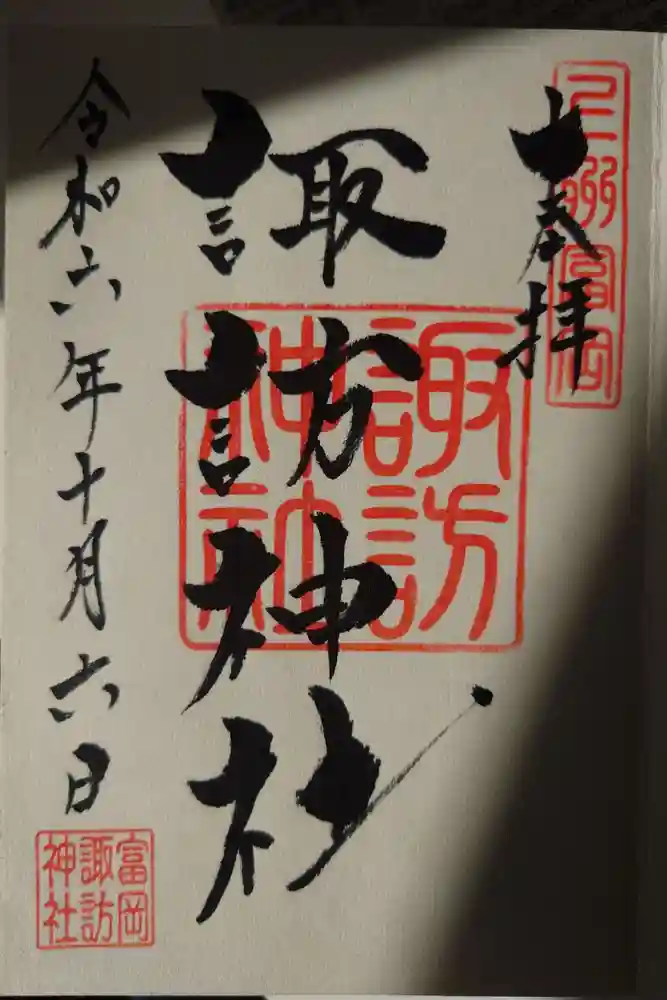 奉拝
上州富岡
諏訪神社
諏訪
神社
令和六年十月六日
富岡
諏訪
神社